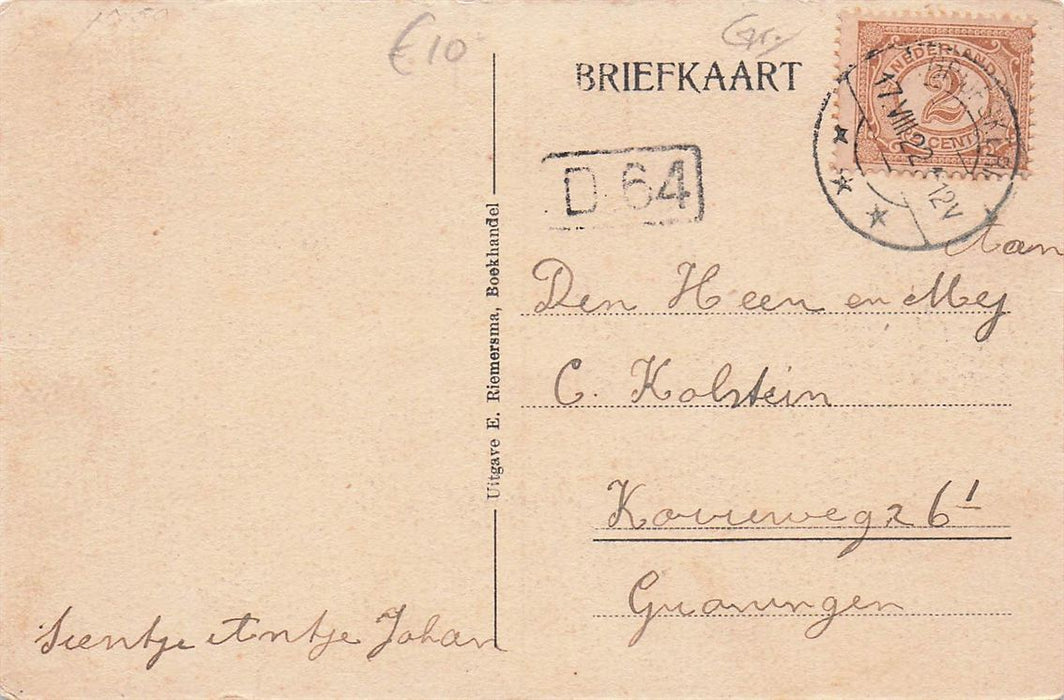 €10
BRIEFKAART
NEDERLAND
2
2 CENT
17.VIII.22
12V
D 64
Aan
Den Heer en Mej
C. Holstein
26¹
Groningen
Uitgave E. Riemersma, Boekhandel
Sientje Antje Johan